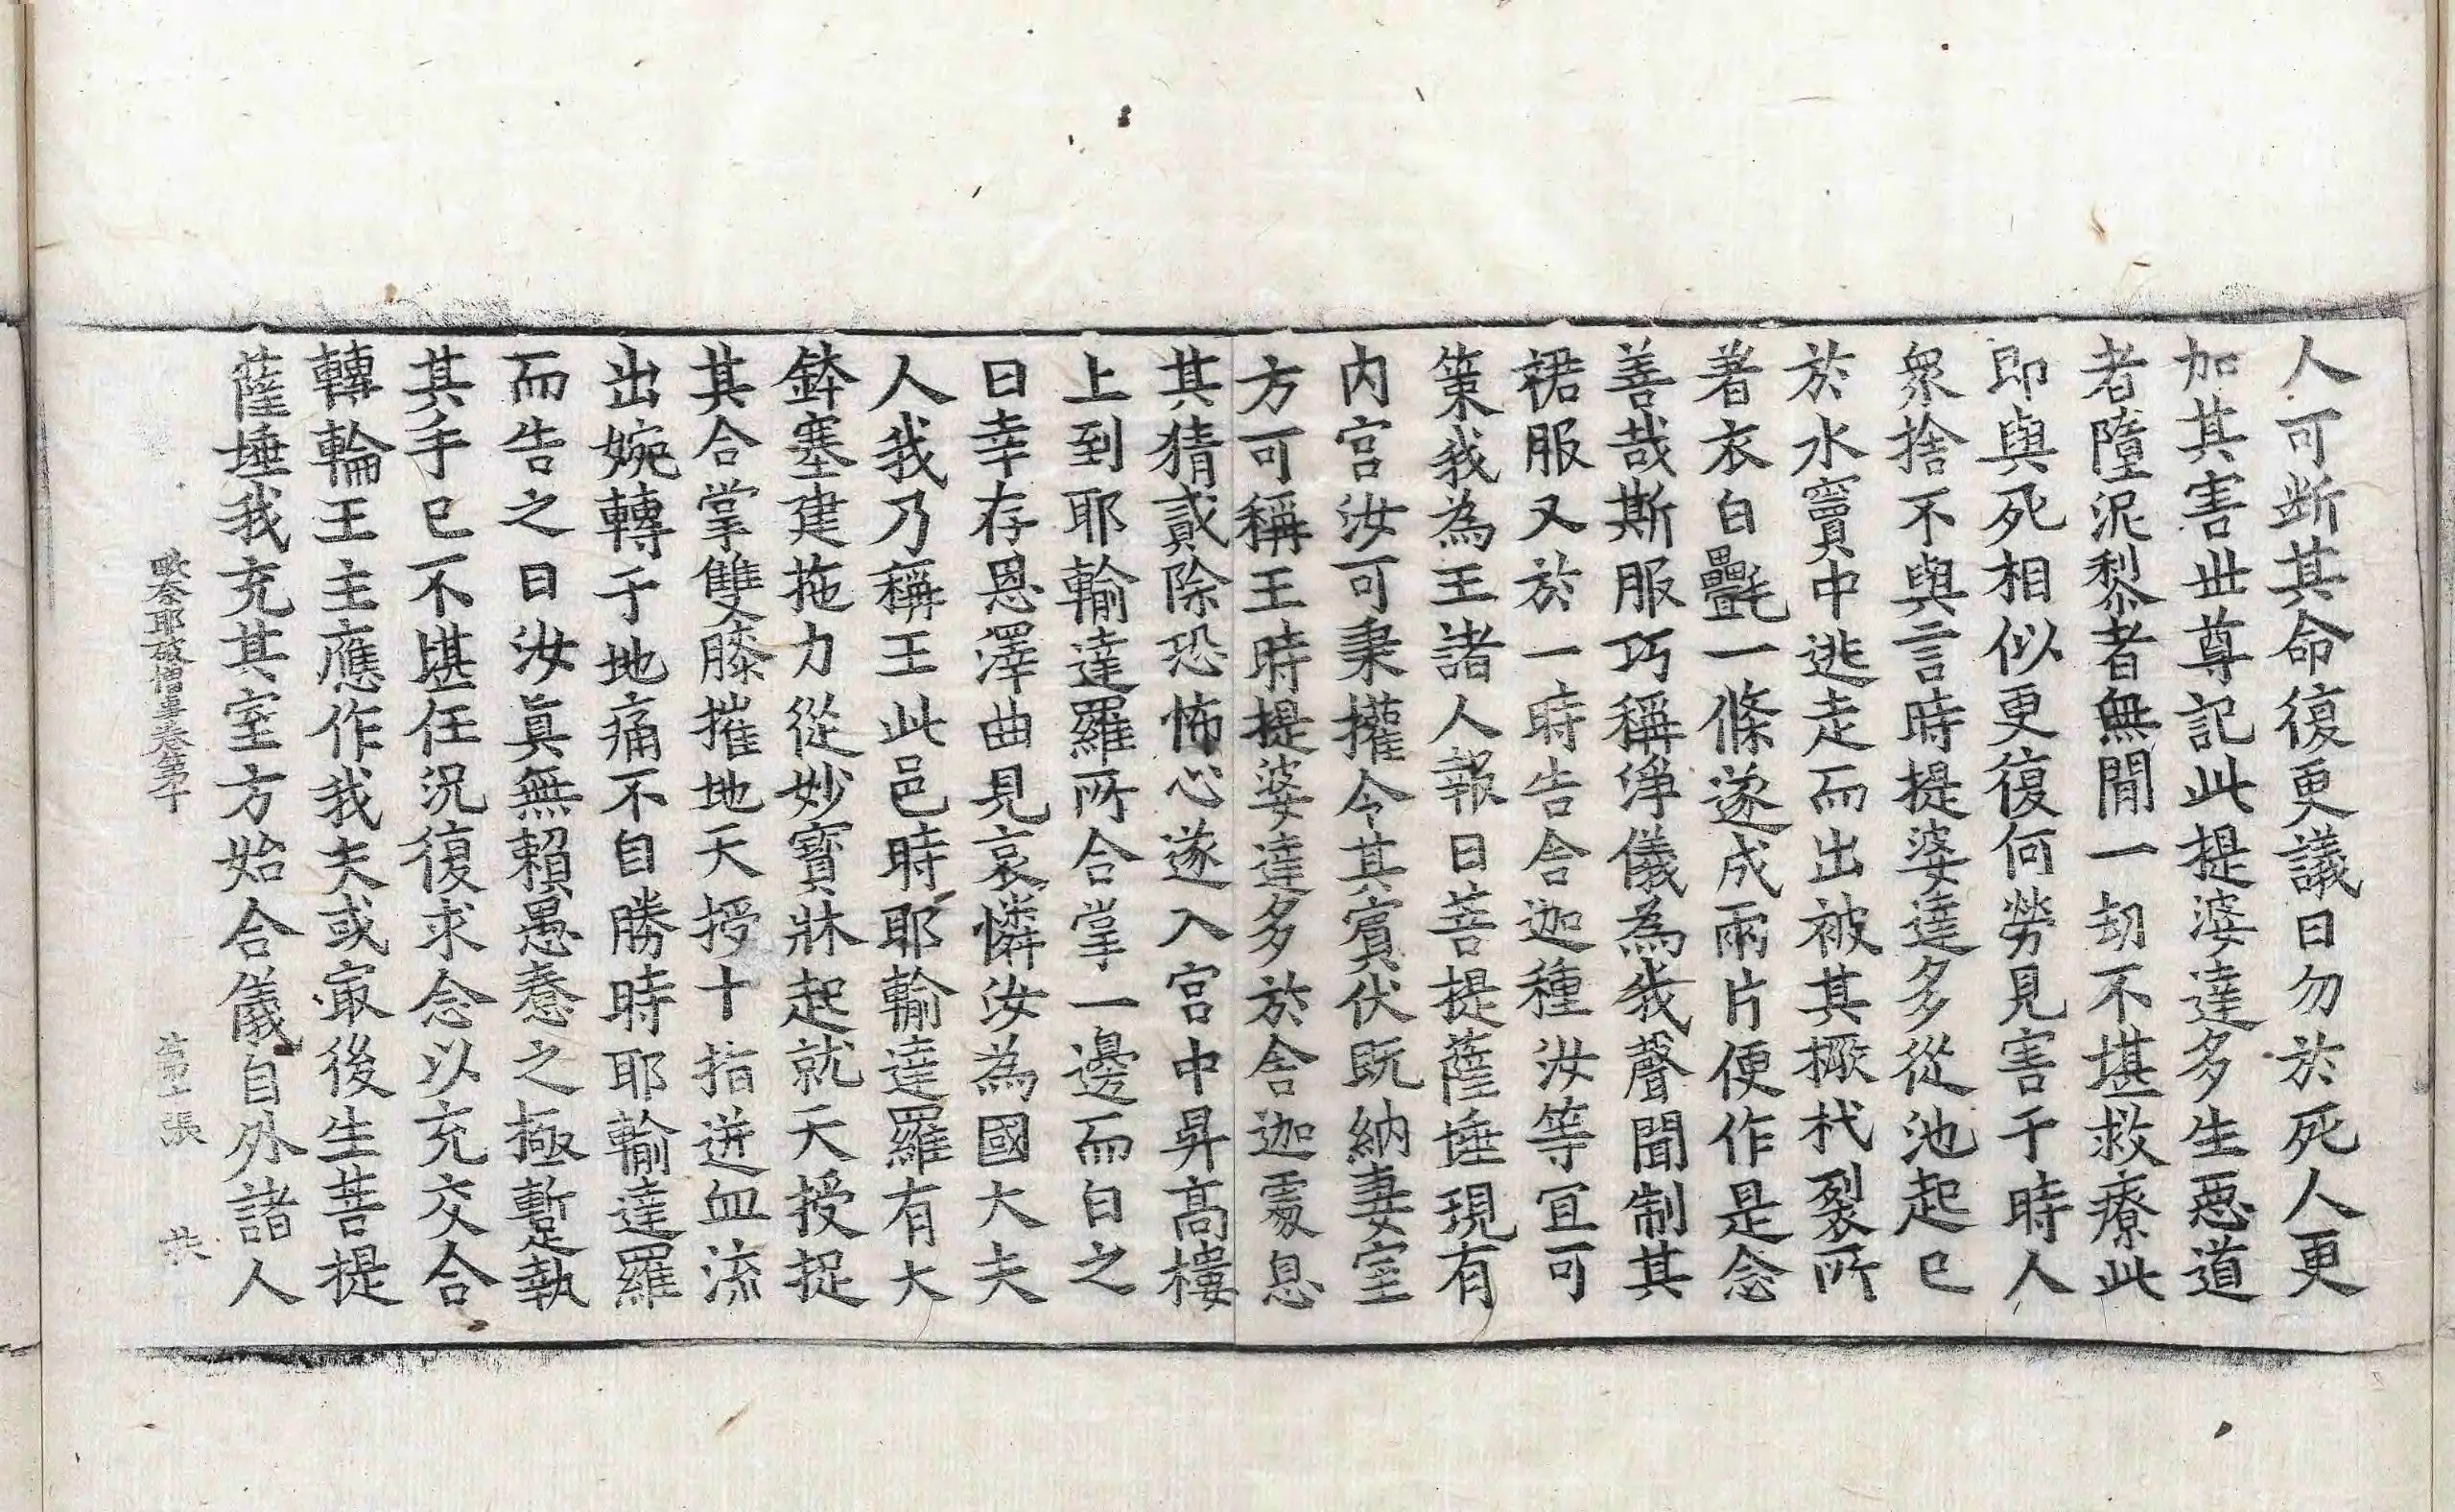 人可斷其命復更議曰勿於死人更
加其害世尊記此提婆達多生惡道
者墮泥黎者無閒一劫不堪救療此
即與死相似更復何勞見害于時人
衆捨不與言時提婆達多從池起已
於水竇中逃走而出被其橛杙裂所
著衣白㲲一條遂成兩片便作是念
善哉斯服巧稱淨儀為我聲聞制其
裙服又於一時告舍迦種汝等宜可
策我為王諸人報曰菩提薩埵現有
内宮汝可秉權令其賓伏旣納妻室
方可稱王時提婆達多於舍迦處息
其猜貳除恐怖心遂入宮中昇高樓
上到耶輸達羅所合掌一邊而白之
曰幸存恩澤曲見哀憐汝為國大夫
人我乃稱王此邑時耶輸達羅有大
鉢塞建拖力從妙寶牀起就天授捉
其合掌雙膝摧地天授十指迸血流
出婉轉于地痛不自勝時耶輸達羅
而告之曰汝眞無賴愚惷之極蹔執
其手已不堪任況復求念以充交合
轉輪王主應作我夫或㝡後生菩提
薩埵我充其室方始合儀自外諸人
耶破僧事卷第十　張　共